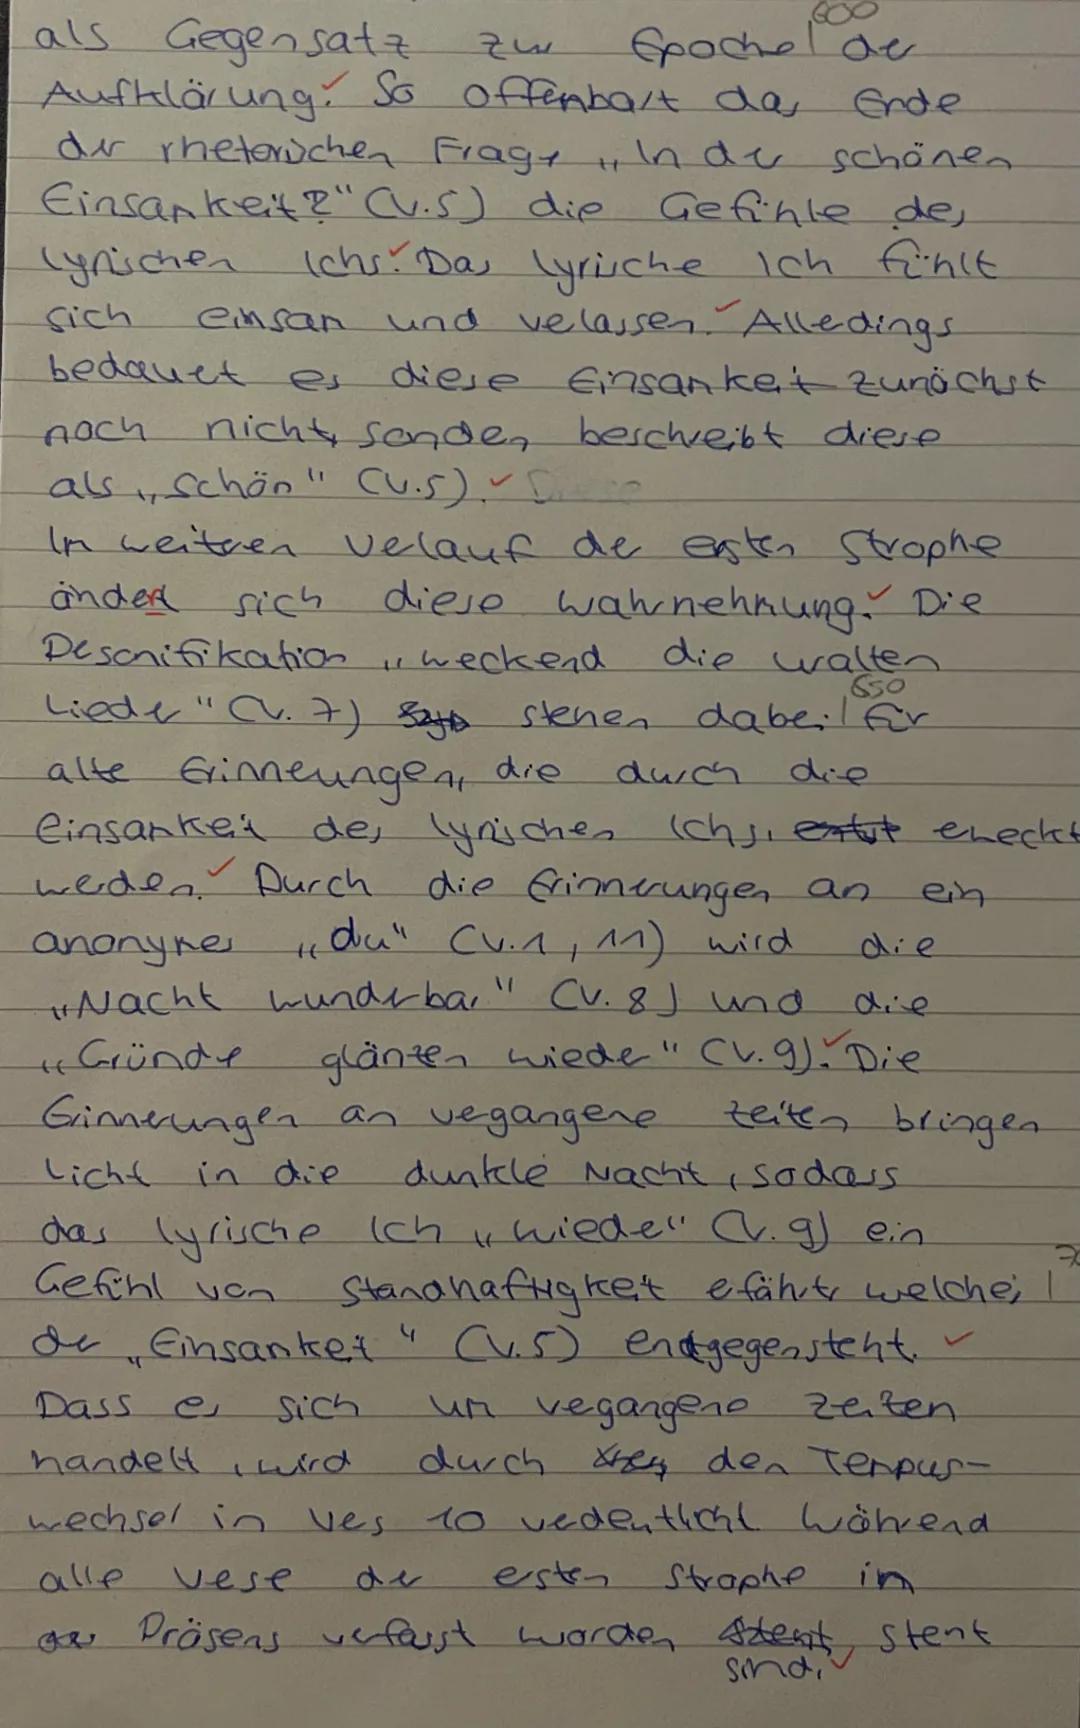 600
als Gegensatz zur Epoche| der
Aufklärung. So offenbart das Ende
der rhetorischen Frage „In der schönen
Einsamkeit?" (V.5) die Gefühle des
lyrischen Ichs. Das lyrische Ich fühlt
sich einsam und velassen. Alledings
bedauet es diese Einsamkeit zunächst
noch nicht, sonden beschreibt diese
als „schön" (V.5).
Im weiteren Velauf der ersten Strophe
ändert sich diese Wahrnehmung. Die
Pesonifikation „weckend die uralten
650
Lieder" (V. 7) stehen dabei| für
alte Erinneungen, die durch die
Einsamkeit des lyrischen Ichs, eweckt
weden. Durch die Erinnerungen an ein
anonymes „du" (V.1, 11) wird die
„Nacht wunderbar" (V. 8) und die
„Gründe glänzen wieder" (V. 9). Die
Erinnerungen an vegangene Zeiten bringen
Licht in die dunkle Nacht, sodass
das lyrische Ich „wieder" (V. 9) ein
Gefühl von Standhaftigkeit efährt, welches |
der „Einsamkeit" (V.5) entgegensteht.
Dass es sich um vegangene Zeiten
handelt, wird durch den Tempus-
wechsel in Vers 10 vedeutlicht. Während
alle Verse der ersten Strophe im
Präsens verfasst worden steht
sind.